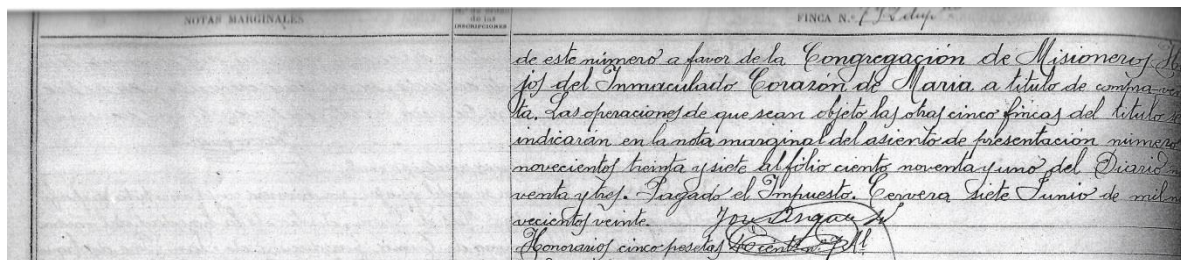 NOTAS MARGINALES
Nº de orden de las INSCRIPCIONES
FINCA N.º 732 dup.
de este número a favor de la Congregación de Misioneros Hi-
jos del Inmaculado Corazón de Maria a titulo de compra-ven
ta. Las operaciones de que sean objeto las otras cinco fincas del titulo se
indicarán en la nota marginal del asiento de presentación número
novecientos treinta y siete al folio ciento noventa y uno del Diario no
venta y tres. Pagado el Impuesto. Cervera siete Junio de mil no
vecientos veinte.
Honorarios cinco pesetas